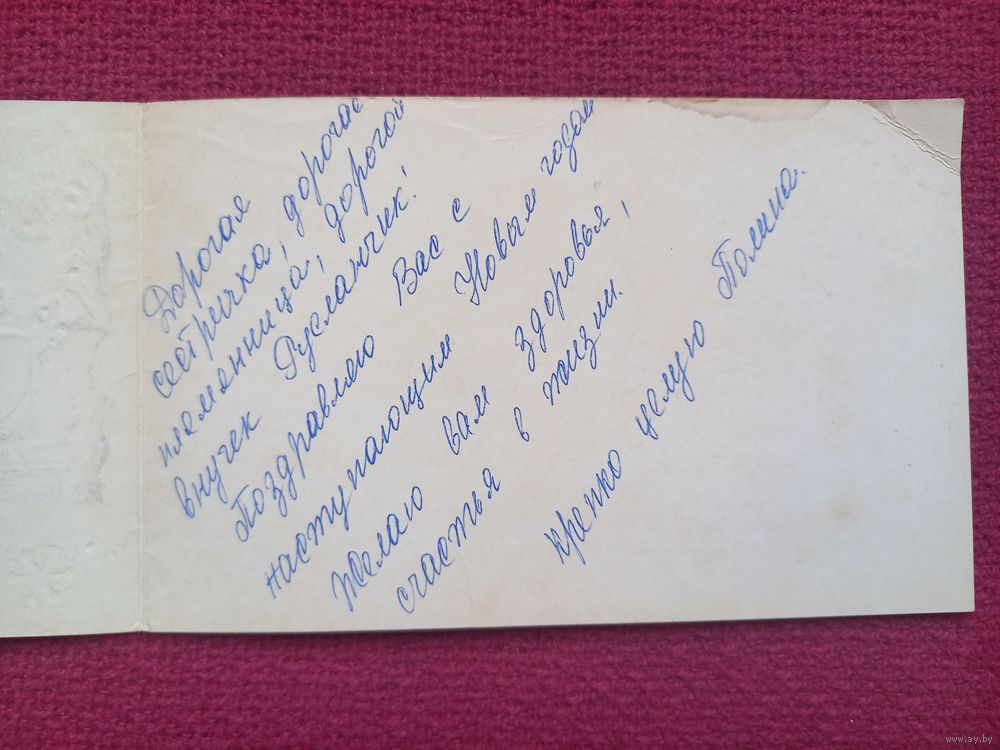 Дорогая
сестричка, дорогая
племянница, дорогой
внучек Русланчик!
Поздравляю Вас с
наступающим Новым годом
Желаю вам здоровья,
счастья в жизни.
Крепко целую Полина.
www.ay.by